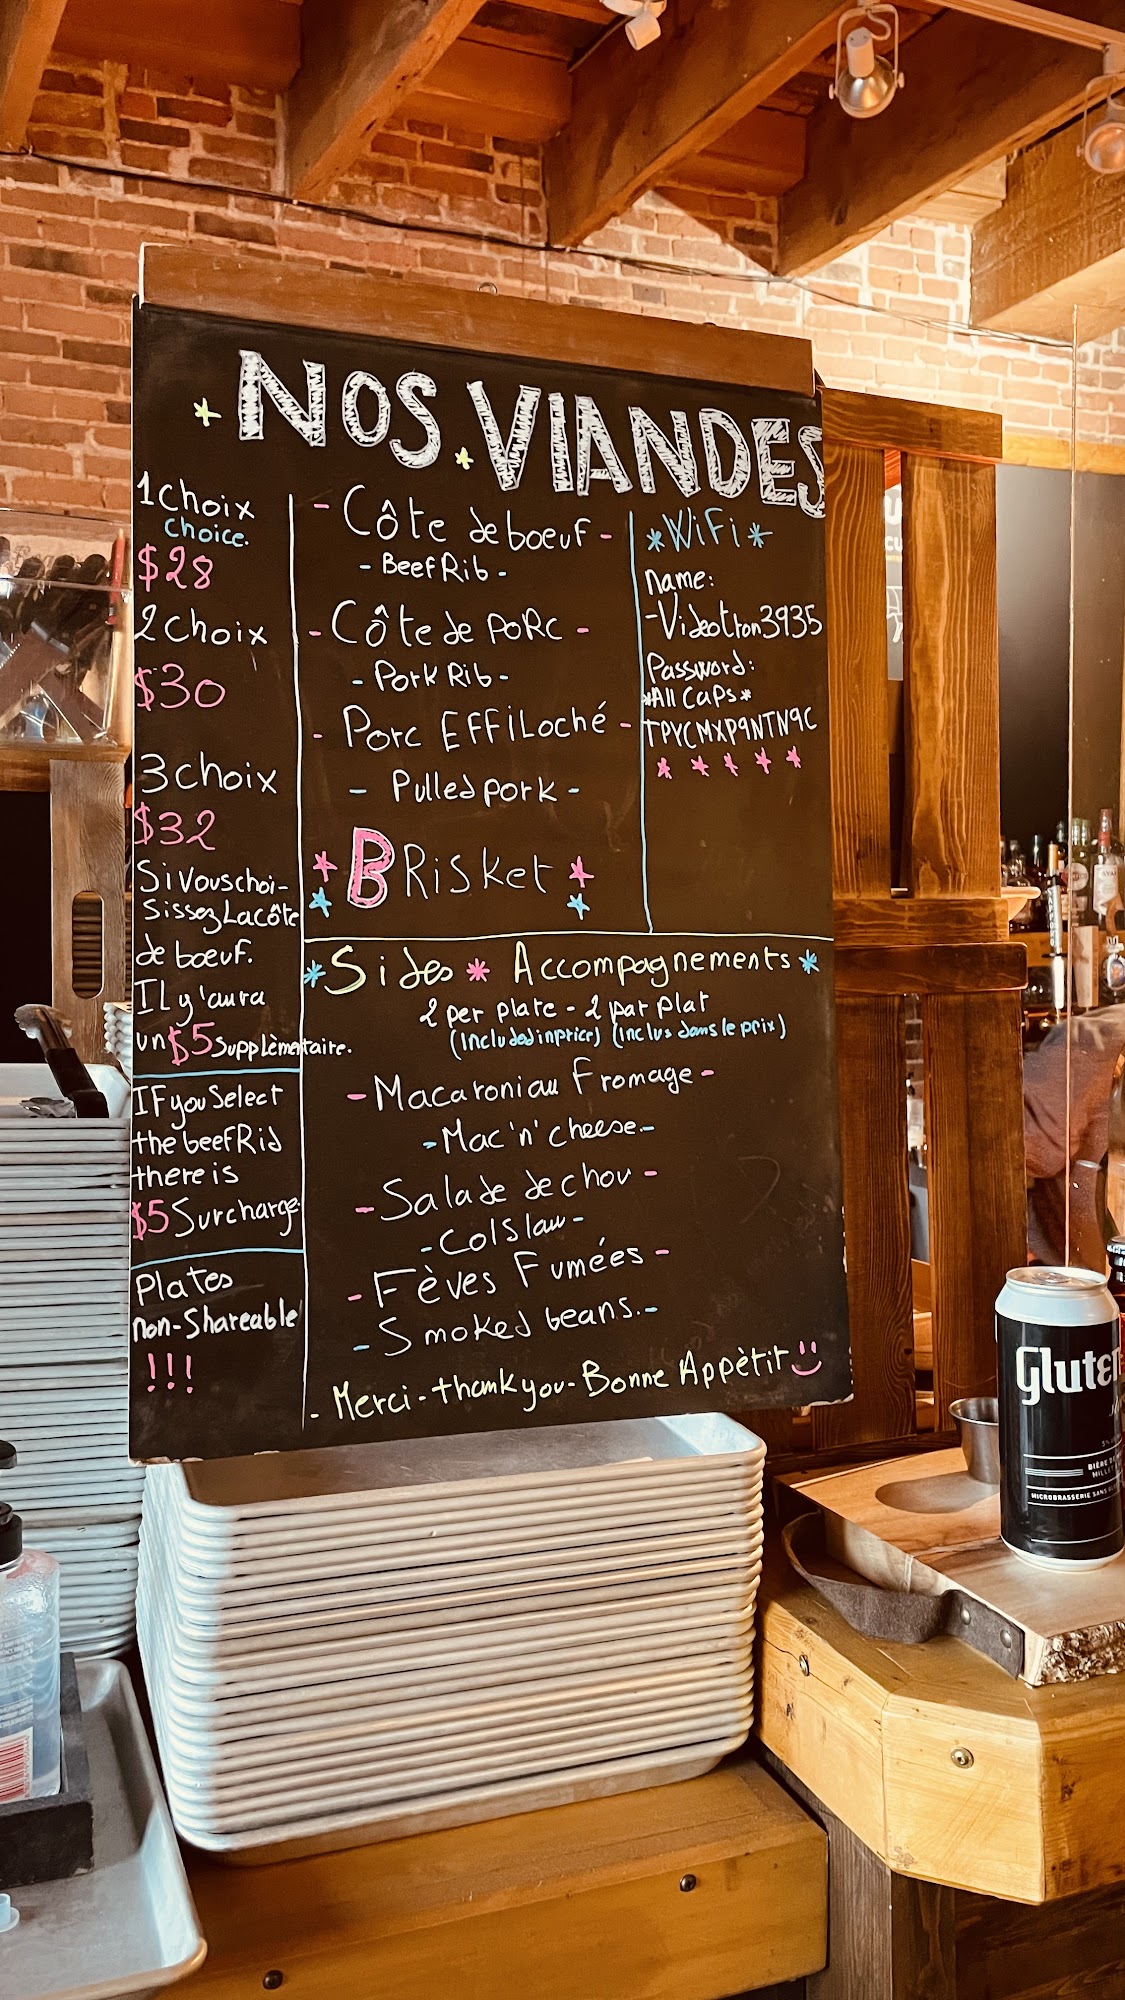 NOS VIANDES
1 choix
choice.
$28
2 choix
$30
3 choix
$32
Si vous choi-
sissez La côte
de boeuf.
IL y'aura
un $5 supplèmentaire.
IF you Select
the beef Rib
there is
$5 Surcharge.
Plates
non-Shareable
!!!
- Côte de boeuf -
- Beef Rib -
- Côte de PORC -
- Pork Rib -
- Porc EFFiLoché -
- Pulled pork -
BRisket
*WiFi*
name:
-Videotron3935
Password:
*All Caps*
TPYCMXP9NTN9C
*Sides * Accompagnements*
2 per plate - 2 par plat
(Included in price) (Inclus dans le prix)
- Macaroni au Fromage -
- Mac'n'cheese.-
- Salade de chou -
- Colslaw -
- Fèves Fumées -
- Smoked beans.-
- Merci - thank you - Bonne Appètit
Gluten
5%
BIÈRE DE
MILLET
MICROBRASSERIE SANS